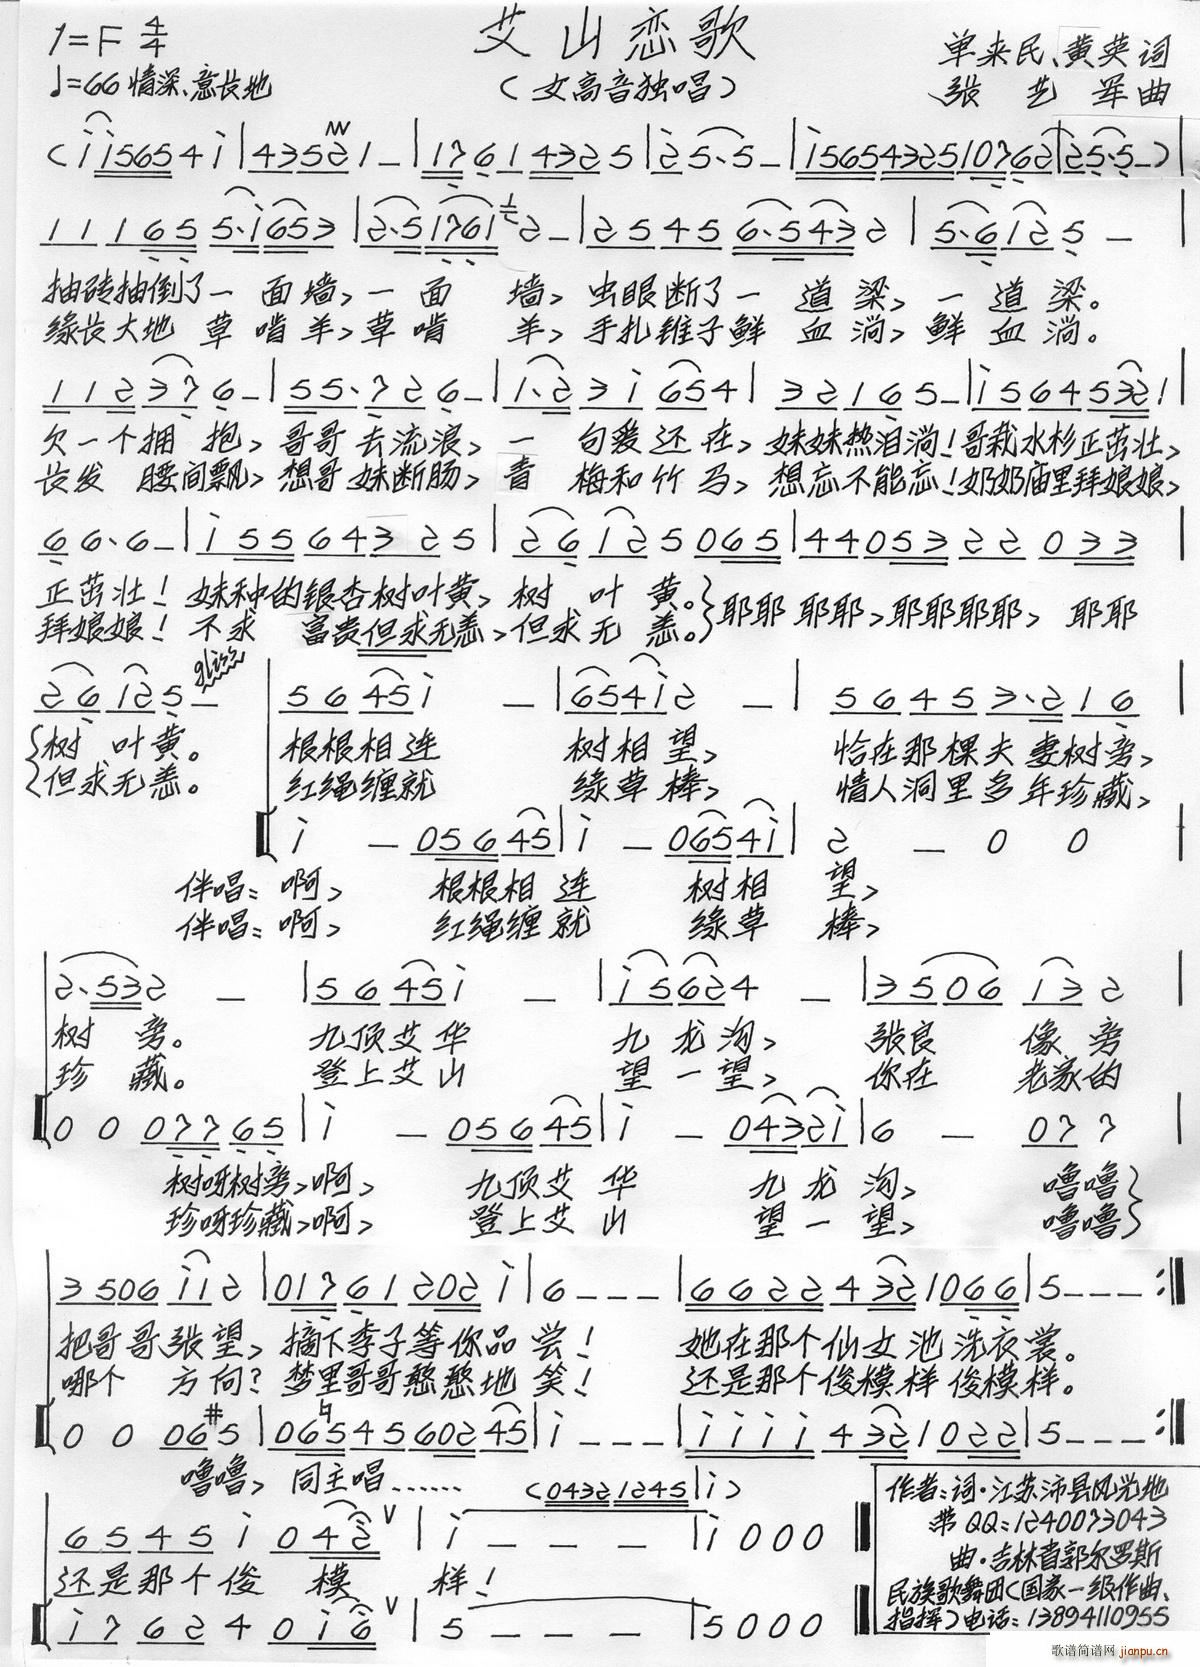 艾山恋歌
1=F 4/4
♩=66 情深、意长地
（女高音独唱）
单来民、黄英词
张艺军曲
抽砖抽倒了一面墙，一面墙，虫眼断了一道梁，一道梁。
缘长大地草啃羊，草啃羊，手扎锥子鲜血淌，鲜血淌。
欠一个拥抱，哥哥去流浪，一句爱还在，妹妹热泪淌！哥栽水杉正茁壮，
长发腰间飘，想哥妹断肠，青梅和竹马，想忘不能忘！奶奶庙里拜娘娘，
正茁壮！妹种的银杏树叶黄，树叶黄。耶耶耶耶，耶耶耶耶，耶耶
拜娘娘！不求富贵但求无恙，但求无恙。
gliss
树叶黄。根根相连树相望，恰在那棵夫妻树旁，
但求无恙。红绳缠就缘草棒，情人洞里多年珍藏，
伴唱：啊，根根相连树相望，
伴唱：啊，红绳缠就缘草棒，
树旁。九顶艾华九龙沟，张良像旁
珍藏。登上艾山望一望，你在老家的
树呀树旁，啊，九顶艾华九龙沟，噜噜
珍呀珍藏，啊，登上艾山望一望，噜噜
把哥哥张望，摘下李子等你品尝！她在那个仙女池洗衣裳。
哪个方向？梦里哥哥憨憨地笑！还是那个俊模样俊模样。
噜噜，同主唱……
还是那个俊模样！
作者：词·江苏沛县风光地
带QQ：1240073043
曲·吉林省郭尔罗斯
民族歌舞团（国家一级作曲、
指挥）电话：13894110955
歌谱简谱网 jianpu.cn